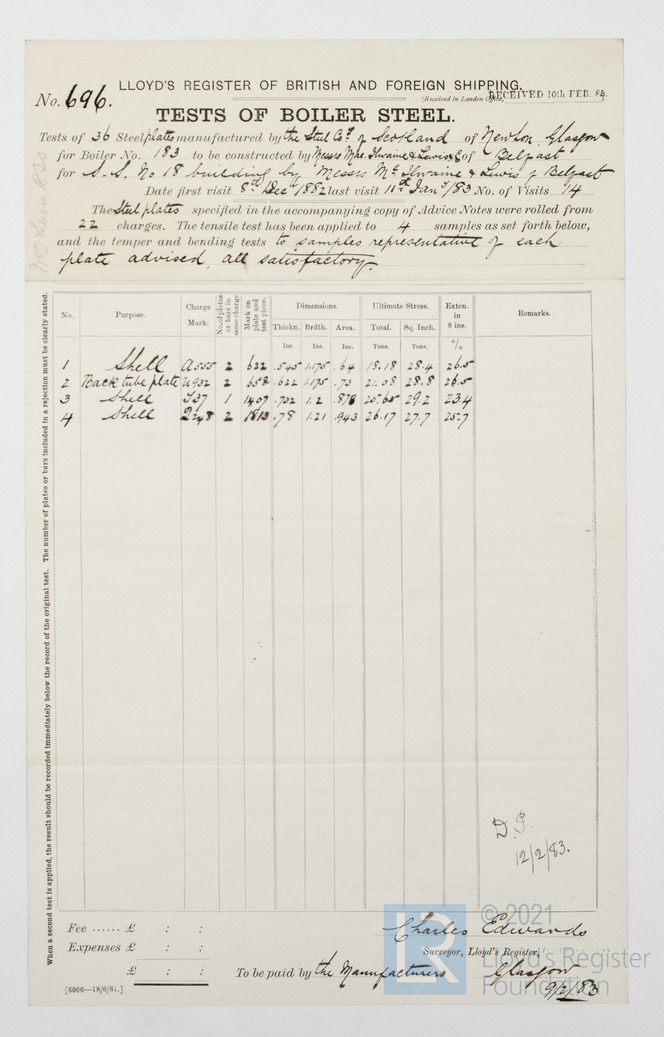 LLOYD'S REGISTER OF BRITISH AND FOREIGN SHIPPING.
No. 696.
(Received in London Office, RECEIVED 10th FEB. 83.
TESTS OF BOILER STEEL.
Tests of 36 Steel plates manufactured by the Steel Co. of Scotland of Newton, Glasgow
for Boiler No. 183 to be constructed by Messrs MacIlwaine & Lewis of Belfast
for S.S. No 18 building by Messrs McIlwaine & Lewis of Belfast
Date first visit 8th Decr 1882 last visit 11th Jany /83 No. of Visits 14
The Steel plates specified in the accompanying copy of Advice Notes were rolled from
22 charges. The tensile test has been applied to 4 samples as set forth below,
and the temper and bending tests to samples representative of each
plate advised, all satisfactory.
When a second test is applied, the result should be recorded immediately below the record of the original test. The number of plates or bars included in a rejection must be clearly stated.
No. Purpose. Charge Mark. No. of plates or bars in same charge Mark on plate and test piece. Dimensions. Ultimate Stress. Exten. in 8 ins. Remarks.
Thickn. Brdth. Area. Total. Sq. Inch.
Ins. Ins. Ins. Tons. Tons. %
1 Shell 2 622 .545 1.175 .64 18.18 28.4 26.5
2 Back tube plate 2 658 .622 1.175 .73 21.08 28.8 26.5
3 Shell 1 1407 .732 1.2 .878 25.65 29.2 23.4
4 Shell 2 1813 .78 1.21 .943 26.17 27.7 25.7
D.P.
12/2/83.
Fee ...... £ : :
Expenses £ : :
£ : :
Charles Edwards
Surveyor, Lloyd's Register,
To be paid by the Manufacturers Glasgow
9/2/83
[6000—18/6/81.]
© 2021
LR
Lloyd's Register
Foundation